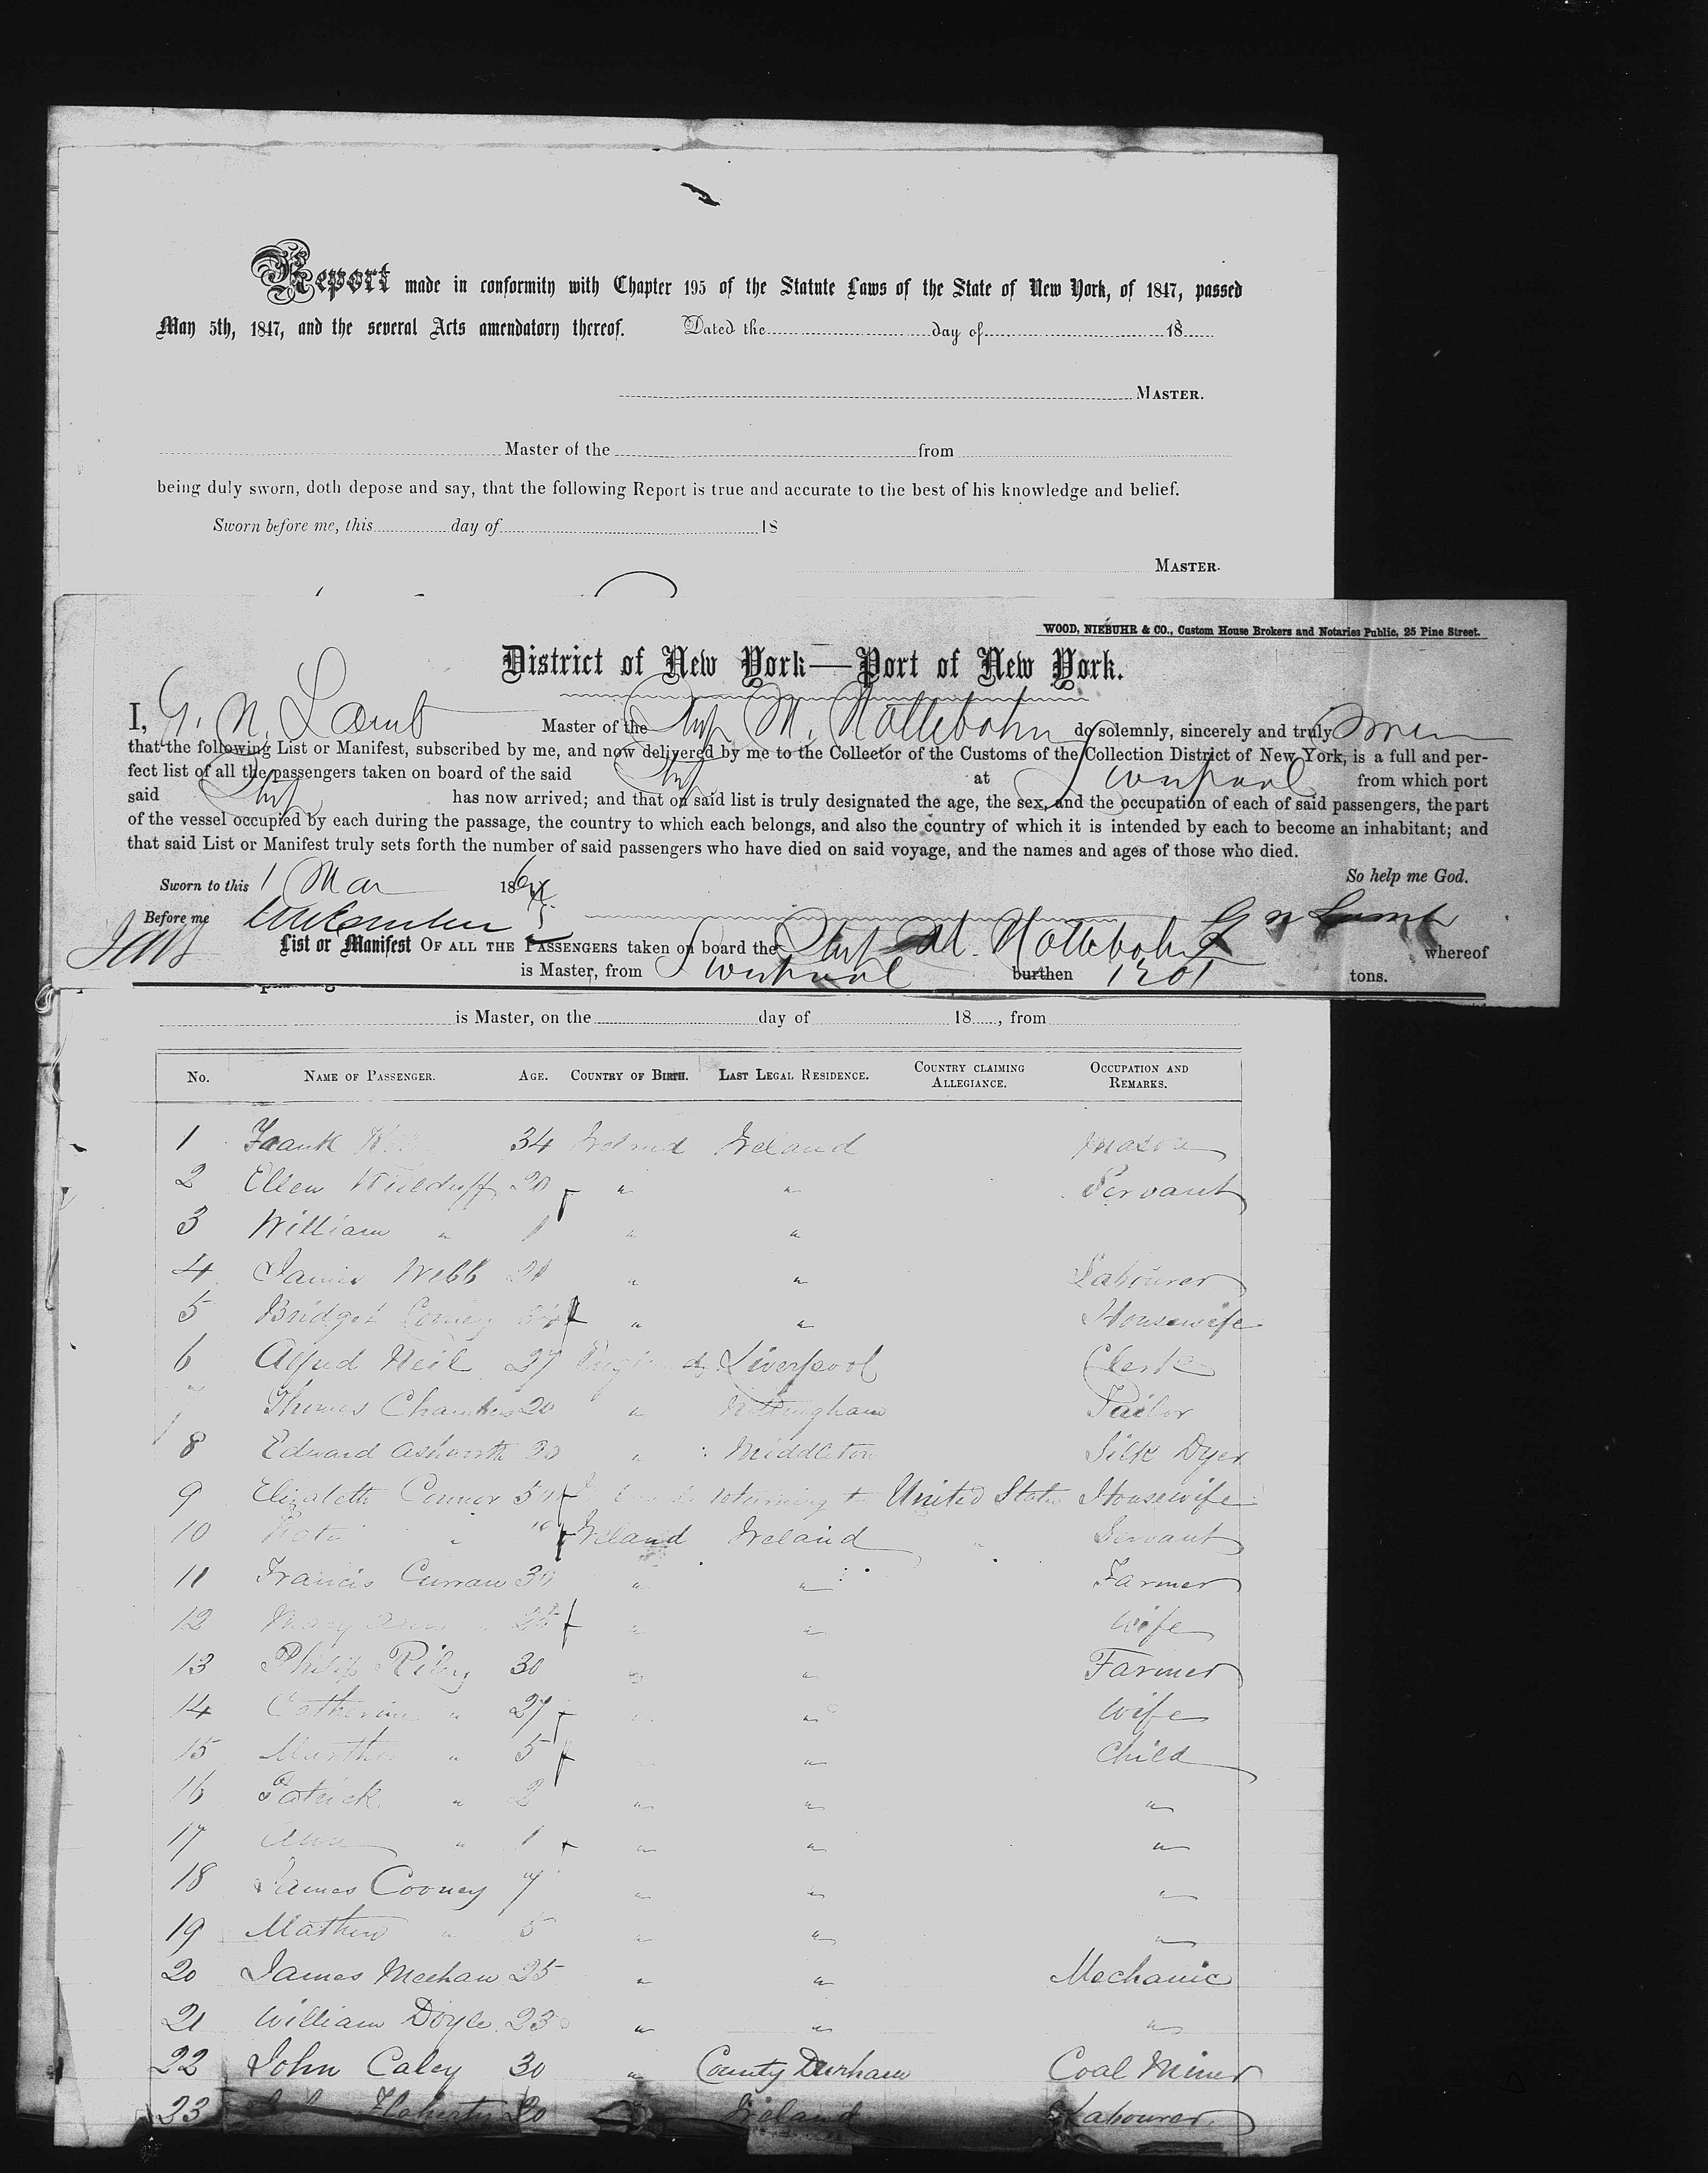 Report made in conformity with Chapter 195 of the Statute Laws of the State of New York, of 1847, passed
May 5th, 1847, and the several Acts amendatory thereof. Dated the day of 18
MASTER.
Master of the from
being duly sworn, doth depose and say, that the following Report is true and accurate to the best of his knowledge and belief.
Sworn before me, this day of 18
MASTER.
WOOD, NIEBUHR & CO., Custom House Brokers and Notaries Public, 25 Pine Street.
District of New York—Port of New York.
I, G. N. Lamb Master of the Ship M. Nottebohm do solemnly, sincerely and truly
that the following List or Manifest, subscribed by me, and now delivered by me to the Collector of the Customs of the Collection District of New York, is a full and per-
fect list of all the passengers taken on board of the said Ship at Liverpool from which port
said Ship has now arrived; and that on said list is truly designated the age, the sex, and the occupation of each of said passengers, the part
of the vessel occupied by each during the passage, the country to which each belongs, and also the country of which it is intended by each to become an inhabitant; and
that said List or Manifest truly sets forth the number of said passengers who have died on said voyage, and the names and ages of those who died.
Sworn to this 1 Mar 186 So help me God.
Before me G N Lamb
List or Manifest OF ALL THE PASSENGERS taken on board the Ship M. Nottebohm whereof
is Master, from Liverpool burthen tons.
is Master, on the day of 18 , from
No. NAME OF PASSENGER. AGE. COUNTRY OF BIRTH. LAST LEGAL RESIDENCE. COUNTRY CLAIMING ALLEGIANCE. OCCUPATION AND REMARKS.
1 Frank 34 Ireland Ireland Mason
2 Ellen Kilduff 20 " " Servant
3 William " 1 " "
4 James Webb 21 " " Labourer
5 Bridget Cooney 34 " " Housewife
6 Alfred Neil 27 England Liverpool Clerk
7 Thomas Chambers 20 " Nottingham Tailor
8 Edward Ashworth 20 " Middleton Silk Dyer
9 Elizabeth Connor 50 returning to United States Housewife
10 Kate " Ireland Ireland " Servant
11 Francis Curran 30 " " Farmer
12 Mary Ann " 25 " " Wife
13 Philip Riley 30 " " Farmer
14 Catherine " 27 " " Wife
15 Martha " 5 " Child
16 Patrick " 2 " " "
17 Ann " 1 " " "
18 James Cooney 7 " " "
19 Mathew " 5 " " "
20 James Meehan 25 " " Mechanic
21 William Doyle 23 " " "
22 John Caley 30 " County Durham Coal Miner
23 Flaherty 20 Ireland Labourer